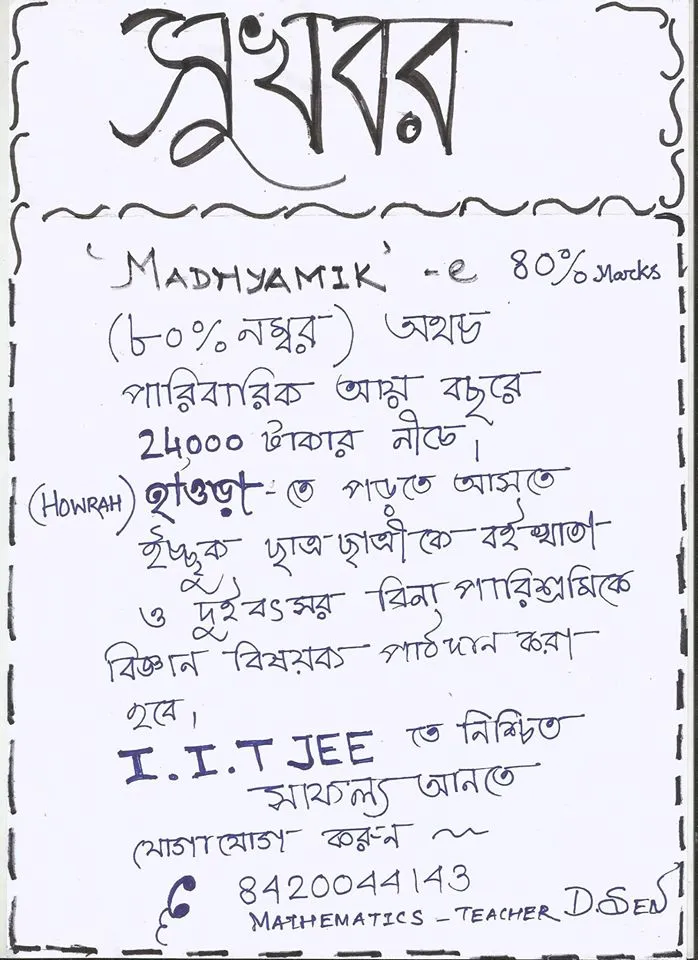 সুখবর
'MADHYAMIK' -e 80% Marks
(৮০% নম্বর) অথচ
পারিবারিক আয় বছরে
24000 টাকার নীচে।
(HOWRAH) হাঁওড়া-তে পড়তে আসতে
ইচ্ছুক ছাত্রছাত্রীকে বই খাতা
ও দুইবৎসর বিনা পারিশ্রমিকে
বিজ্ঞান বিষয়ক পাঠদান করা
হবে।
I.I.T JEE তে নিশ্চিত
সাফল্য আনতে
যোগাযোগ করুন ~
8420044143
MATHEMATICS - TEACHER D.SEN